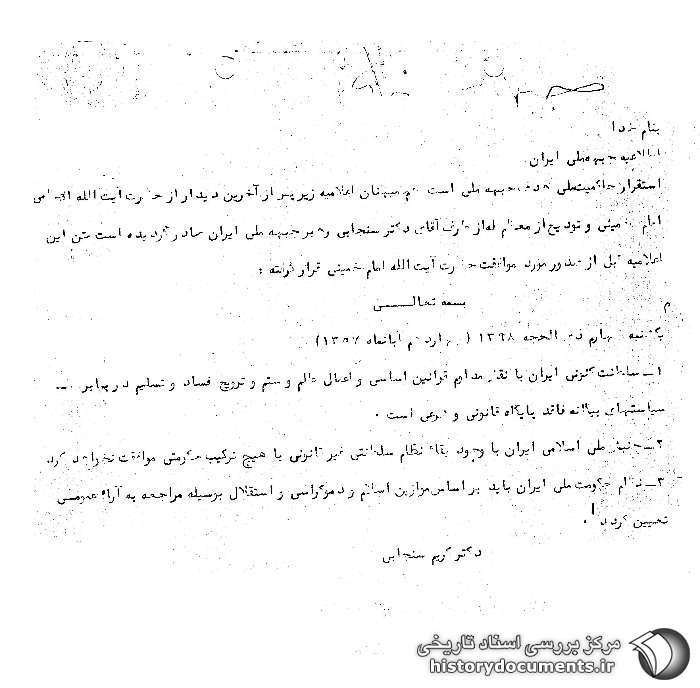 بنام خدا
اطلاعیه جبهه ملی ایران
استقرار حاکمیت ملی هدف جبهه ملی است هم میهنان اعلامیه زیر پس از آخرین دیدار از حضرت آیت الله العظمی
امام خمینی و تودیع از معظم له از طرف آقای دکتر سنجابی رهبر جبهه ملی ایران صادر گردیده است متن این
اعلامیه قبل از صدور مورد موافقت حضرت آیت الله امام خمینی قرار گرفته :
بسمه تعالی
یکشنبه چهارم ذی الحجه ۱۳۹۸ ( چهاردهم آبانماه ۱۳۵۷)
۱ــ سلطنت کنونی ایران با نقض مداوم قوانین اساسی و اعمال ظلم و ستم و ترویج فساد و تسلیم در برابر
سیاستهای بیگانه فاقد پایگاه قانونی و شرعی است .
۲ــ جنبش ملی اسلامی ایران با وجود بقاء نظام سلطنتی غیر قانونی با هیچ ترکیب حکومتی موافقت نخواهد کرد
۳ــ نظام حکومت ملی ایران باید بر اساس موازین اسلام و دموکراسی و استقلال بوسیله مراجعه به آراء عمومی
تعیین گردد .
دکتر کریم سنجابی
مرکز بررسی اسناد تاریخی
historydocuments.ir